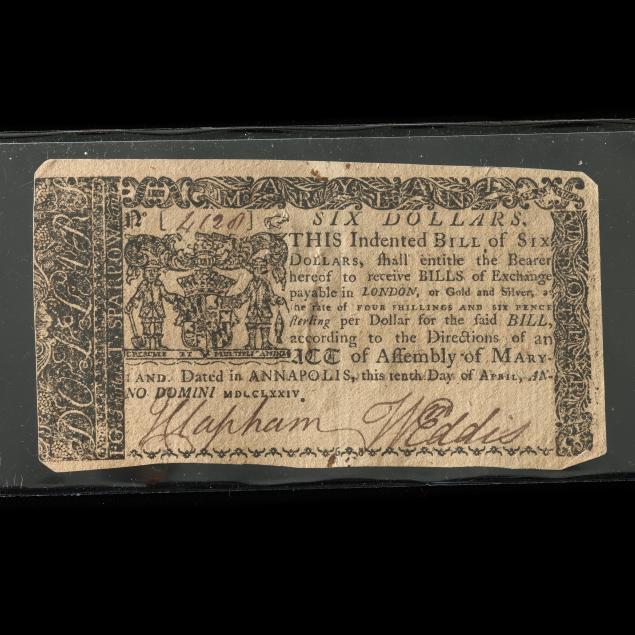 MARYLAND
Nº [ 4128 ] SIX DOLLARS.
THIS Indented BILL of SIX
DOLLARS, ſhall entitle the Bearer
hereof to receive BILLS of Exchange
payable in LONDON, or Gold and Silver, at
the rate of FOUR SHILLINGS AND SIX PENCE
ſterling per Dollar for the ſaid BILL,
according to the Directions of an
ACT of Aſſembly of MARY-
LAND. Dated in ANNAPOLIS, this tenth Day of APRIL, AN-
NO DOMINI MDCCLXXIV.
CRESCITE ET MULTIPLICAMINI
JClapham WEddis